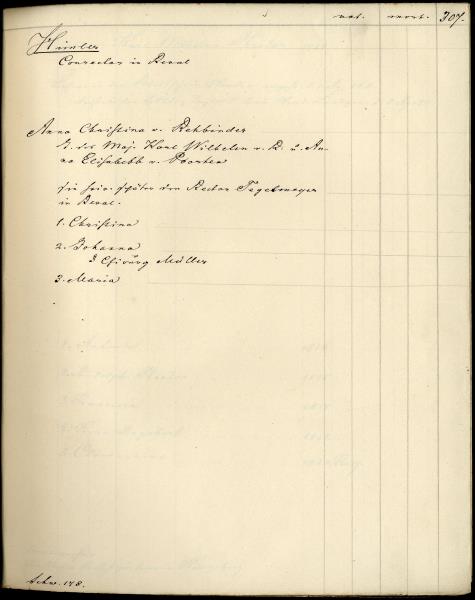 nat. mort. 307.
Himler
Conrector in Reval
Anna Christina v. Rehbinder
T. des Maj. Karl Wilhelm v. R. u. An-
na Elisabeth v. Poorten
sie heir. später den Rector Tegelmeyer
in Reval.
1. Christina
2. Johanna
Chirurg Müller
3. Maria
Schw. 178.